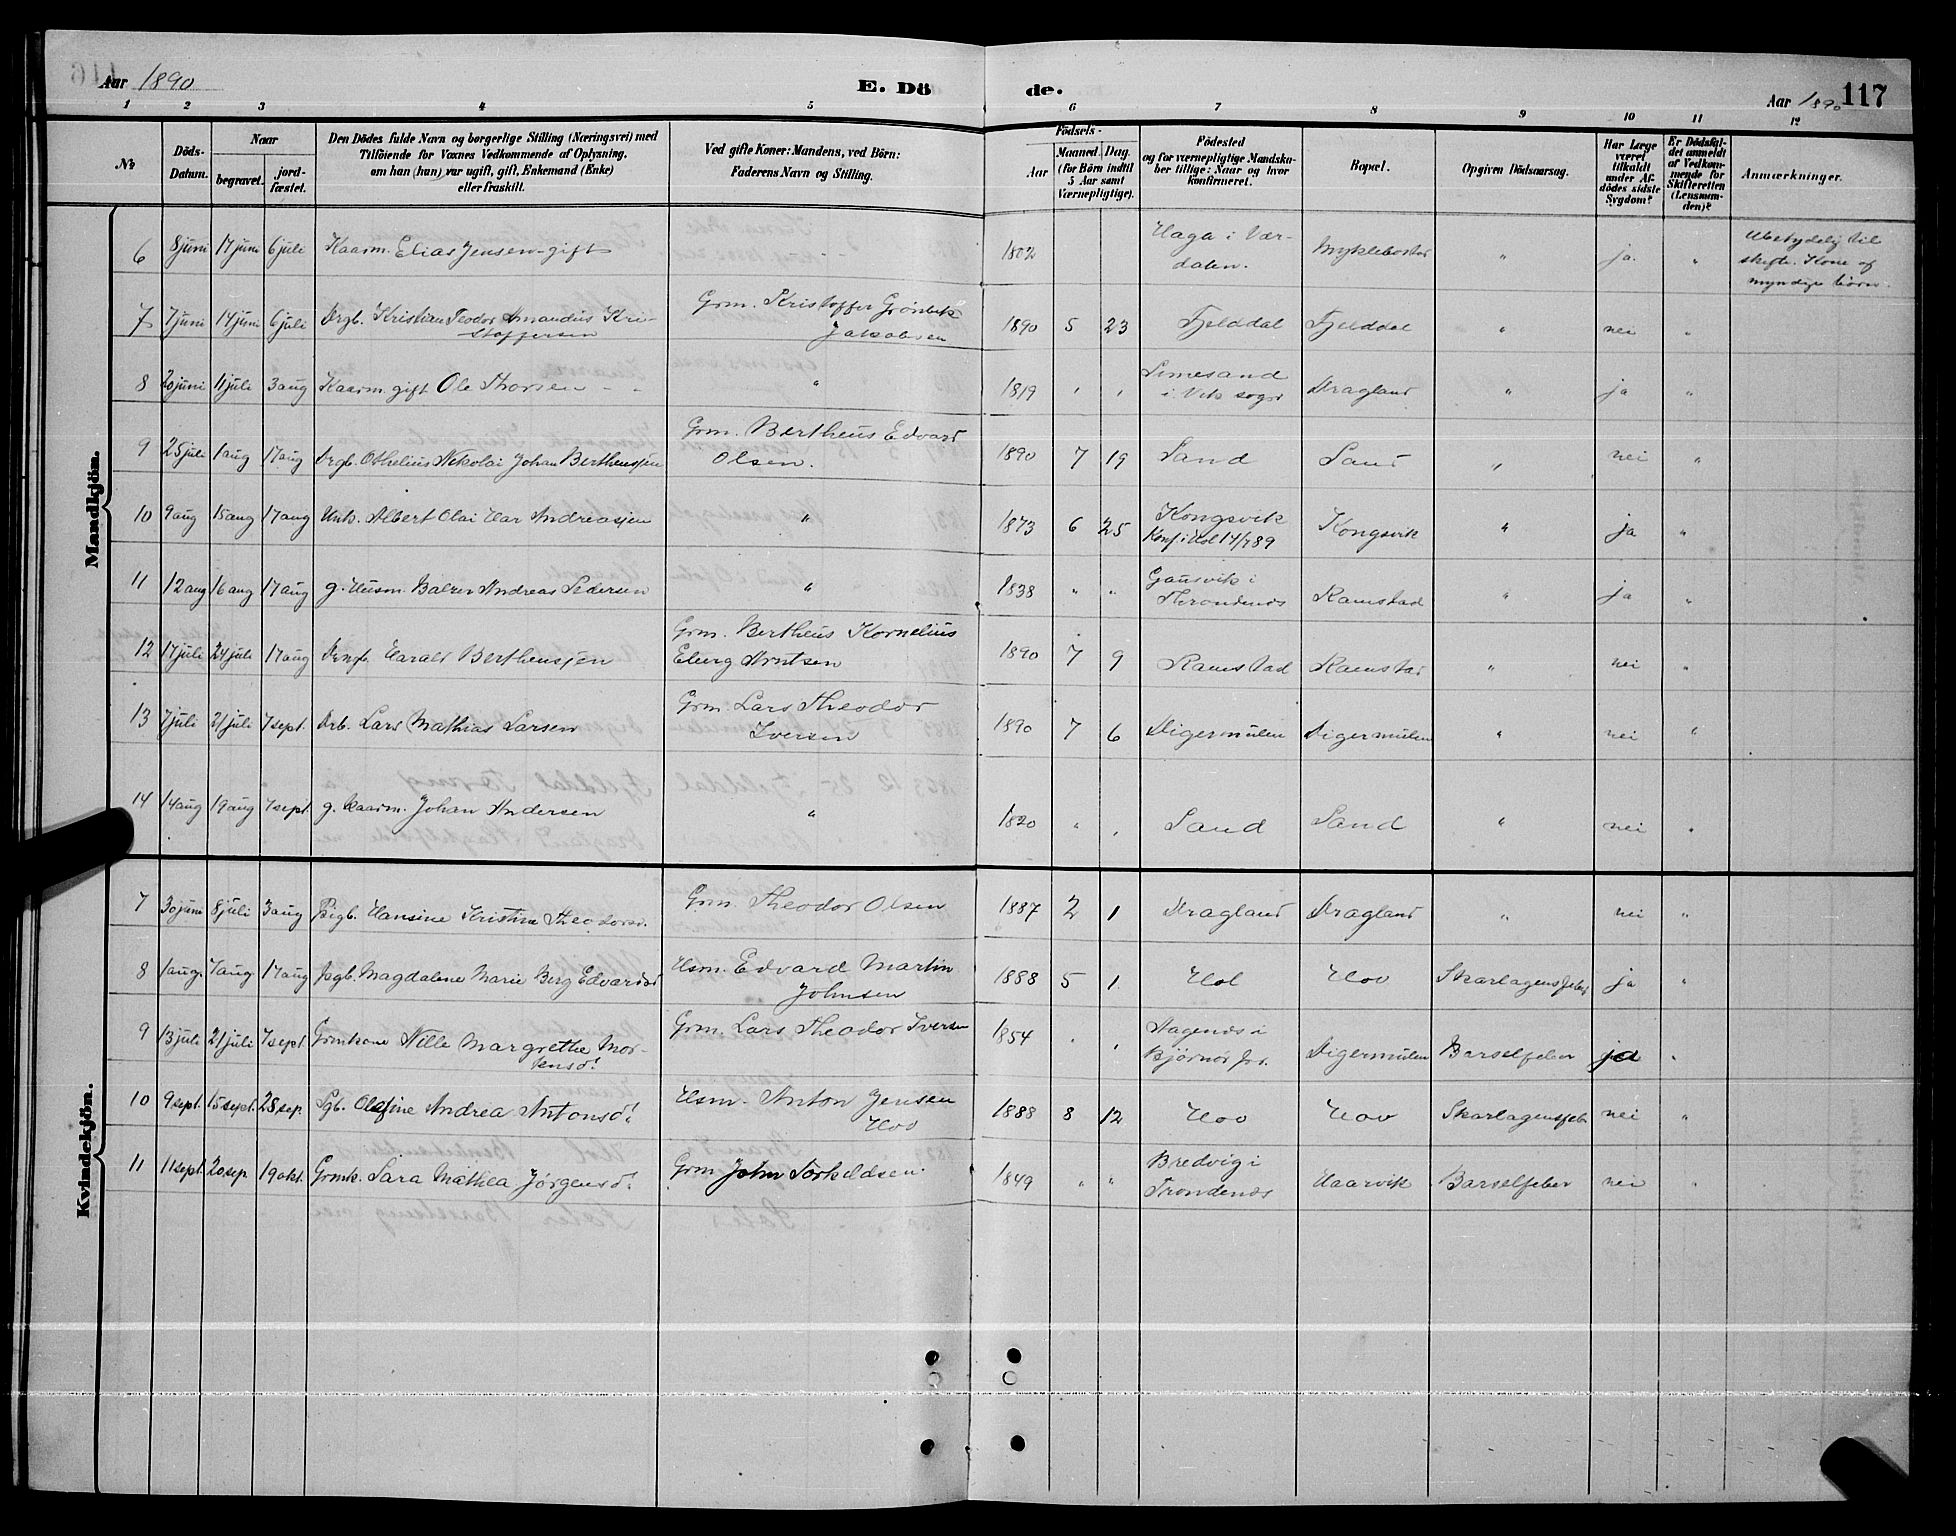 Aar 1890
E. Döde.
Aar 1890
117
1 2 3 4 5 6 7 8 9 10 11 12
No
Döds-Datum.
Naar
begravet.
jord-fæstet.
Den Dödes fulde Navn og borgerlige Stilling (Næringsvei) med
Tilföiende for Voxnes Vedkommende af Oplysning,
om han (hun) var ugift, gift, Enkemand (Enke)
eller fraskilt.
Ved gifte Koner: Mandens, ved Börn:
Faderens Navn og Stilling.
Födsels-
Aar
Maaned. Dag.
(for Börn indtil
5 Aar samt
Værnepligtige).
Födested
og for værnepligtige Mandska-
ber tillige: Naar og hvor
konfirmeret.
Bopæl.
Opgiven Dödsaarsag.
Har Læge
været
tilkaldt
under Af-
dödes sidste
Sygdom?
Er Dödsfal-
det anmeldt
af Vedkom-
mende for
Skifteretten
(Lensman-
den)?
Anmærkninger.
Mandkjön.
6 8 juni 17 juni 6 juli Kaarm. Elias Jensen gift " 1802 Haga i Vær-dalen. Myklebostad " ja " Ubetydelig til skifte. Kone og myndige börn.
7 7 juni 14 juni 6 juli Drgb. Kristian Teodor Amandus Kri-stoffersen Grm. Kristoffer Grönbek Jakobsen 1890 5 23 Fjelddal Fjelddal " nei "
8 20 juni 11 juli 3 aug Kaarm. gift Ole Thorsen " 1819 " " i Vik sogn Dragland " ja "
9 25 juli 1 aug 17 aug Drgb. Othelius Nikolai Johan Bertheussen Grm. Bertheus Edvard Olsen. 1890 7 19 Sand Sand " nei "
10 9 aug 15 aug 17 aug Unk. Albert Olai Har Andreassen " 1873 6 25 Kongsvik Konf. i Hol 14/7 89 Kongsvik " ja "
11 12 aug 16 aug 17 aug g. Husm. Balzer Andreas Pedersen " 1838 " " Gausvik i Throndenæs Ramstad " ja "
12 17 juli 24 juli 17 aug Drgb. Harald Bertheussen Grm. Bertheus Kornelius Eberg Arntsen 1890 7 9 Ramstad Ramstad " nei "
13 7 juli 21 juli 7 sept. Drb. Lars Mathias Larsen Grm. Lars Theodor Iversen 1890 7 6 Digermulen Digermulen " nei "
14 14 aug 19 aug 7 sept g. kaarm. Johan Andersen " 1820 " " Sand Sand " nei "
Kvindekjön.
7 30 juni 8 juli 3 aug Pigb. Hansine Kristine Theodorsd. Grm. Theodor Olsen 1887 2 1 Dragland Dragland " nei "
8 1 aug. 7 aug. 17 aug Pgb. Magdalene Marie Berg Edvardsd Hsm. Edvard Martin Johnsen 1888 5 1 Hol Hov Skarlagensfeber ja "
9 13 juli 21 juli 7 sept. Grmkone Nille Margrethe Mor-tensd. Grm. Lars Theodor Iversen 1854 " " Hagenæs i Bjørnør Digermulen Barselfeber ja "
10 9 sept. 15 sept. 28 sep. Pgb. Olefine Andrea Antonsd. Hsm. Anton Jensen Hov 1888 8 12 Hov Hov Skarlagensfeb nei "
11 11 sept. 20 sep. 19 okt. Grmk. Sara Mathea Jørgensd. Grm John Torkildsen. 1849 " " Bredvig i Trondenæs Haarvik Barselfeber nei "